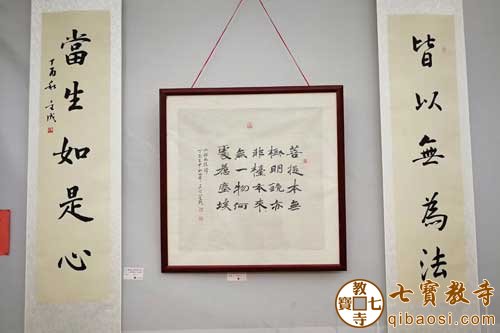 皆以無為法
當生如是心
丁酉秋
菩提本無
樹明鏡亦
非檯本來
無一物何
處惹塵埃
七寶教寺
七寶教寺
qibaosi.com